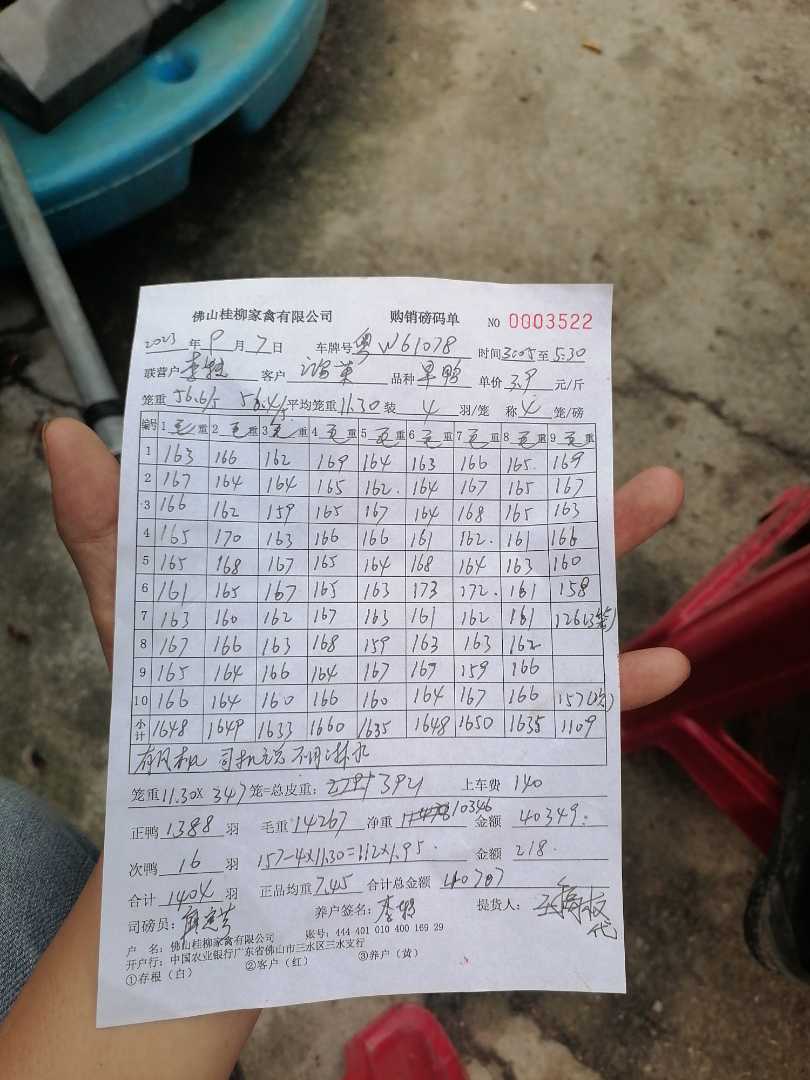 佛山桂柳家禽有限公司 购销磅码单 NO 0003522
2023 年 9 月 7 日 车牌号 粤W61078 时间 3:05 至 5:30
联营户 客户 品种 旱鸭 单价 3.9 元/斤
笼重 56.6/5 56.4/5 平均笼重 11.30 装 4 羽/笼 称 4 笼/磅
编号 1 毛 重 2 毛 重 3 毛 重 4 毛 重 5 毛 重 6 毛 重 7 毛 重 8 毛 重 9 毛 重
1 163 166 162 169 164 163 166 165. 169
2 167 164 164 165 162. 164 167 165 167
3 166 162 159 165 167 164 168 165 163
4 165 170 163 166 166 161 162. 161 166
5 165 168 167 165 164 168 164 163 160
6 161 165 167 165 163 173 172. 161 158
7 163 160 162 167 163 161 162 161 126(3笼)
8 167 166 163 168 159 163 163 162
9 165 164 166 164 167 167 159 166
10 166 164 160 166 160 164 167 166 157(次)
小计 1648 1649 1633 1660 1635 1648 1650 1635 1109
有风机 司机 不用淋水
笼重 11.30X 347 笼=总皮重: 3921 上车费 140
正鸭 1388 羽 毛重 14267 净重 10346 金额 40349.
次鸭 16 羽 157-4X11.30=112X1.95. 金额 218.
合计 1404 羽 正品均重 7.45 合计总金额 40707
司磅员: 养户签名: 提货人: 代
户 名: 佛山桂柳家禽有限公司 账号: 444 401 010 400 169 29
开户行: 中国农业银行广东省佛山市三水区三水支行
①存根（白） ②客户（红） ③养户（黄）